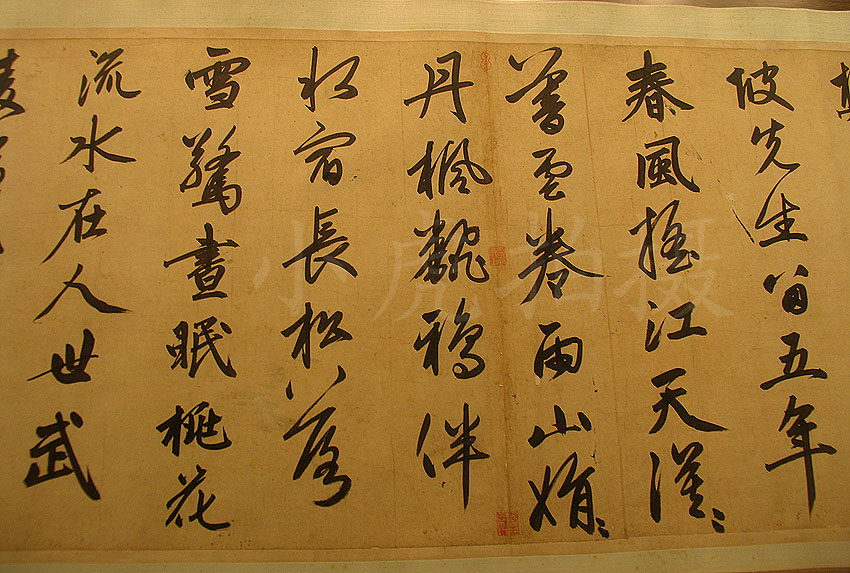 坡先生留五年
春風搖江天漠〻
暮雲卷雨山娟〻
丹楓翻鴉伴
水宿長松落
雪驚晝眠桃花
流水在人世武
小虎拍摄